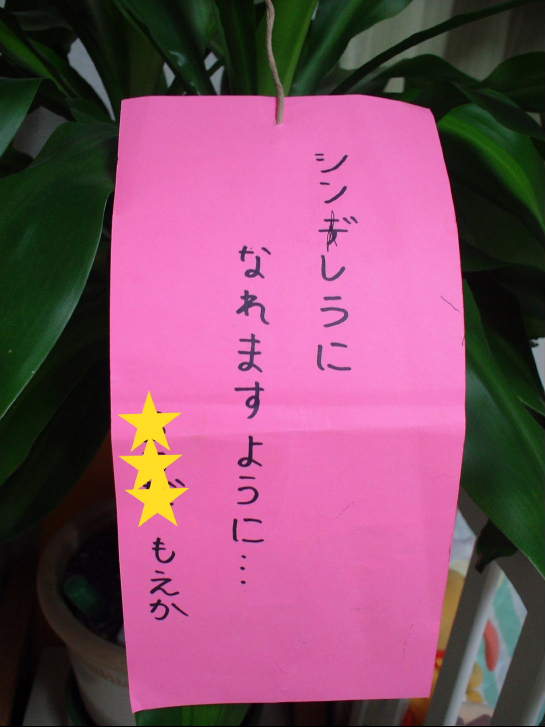 シンガしうに
なれますように…
もえか